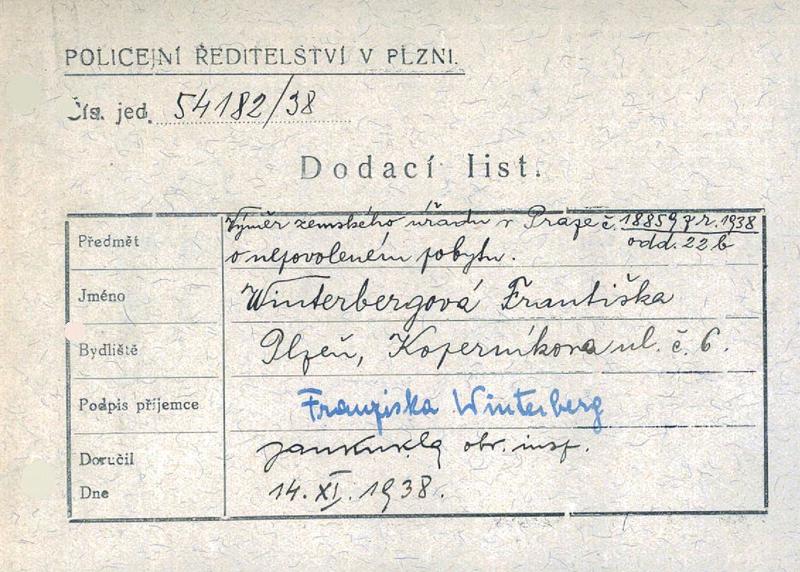 POLICEJNÍ ŘEDITELSTVÍ V PLZNI.
Čís. jed. 54182/38
Dodací list.
Předmět Výměr zemského úřadu v Praze č. 18859 z r. 1938
odd. 22 b
o nepovoleném pobytu.
Jméno Winterbergová Františka
Bydliště Plzeň, Koperníkova ul. č. 6.
Podpis příjemce Franziska Winterberg
Doručil obv. insp.
Dne 14. XI. 1938.